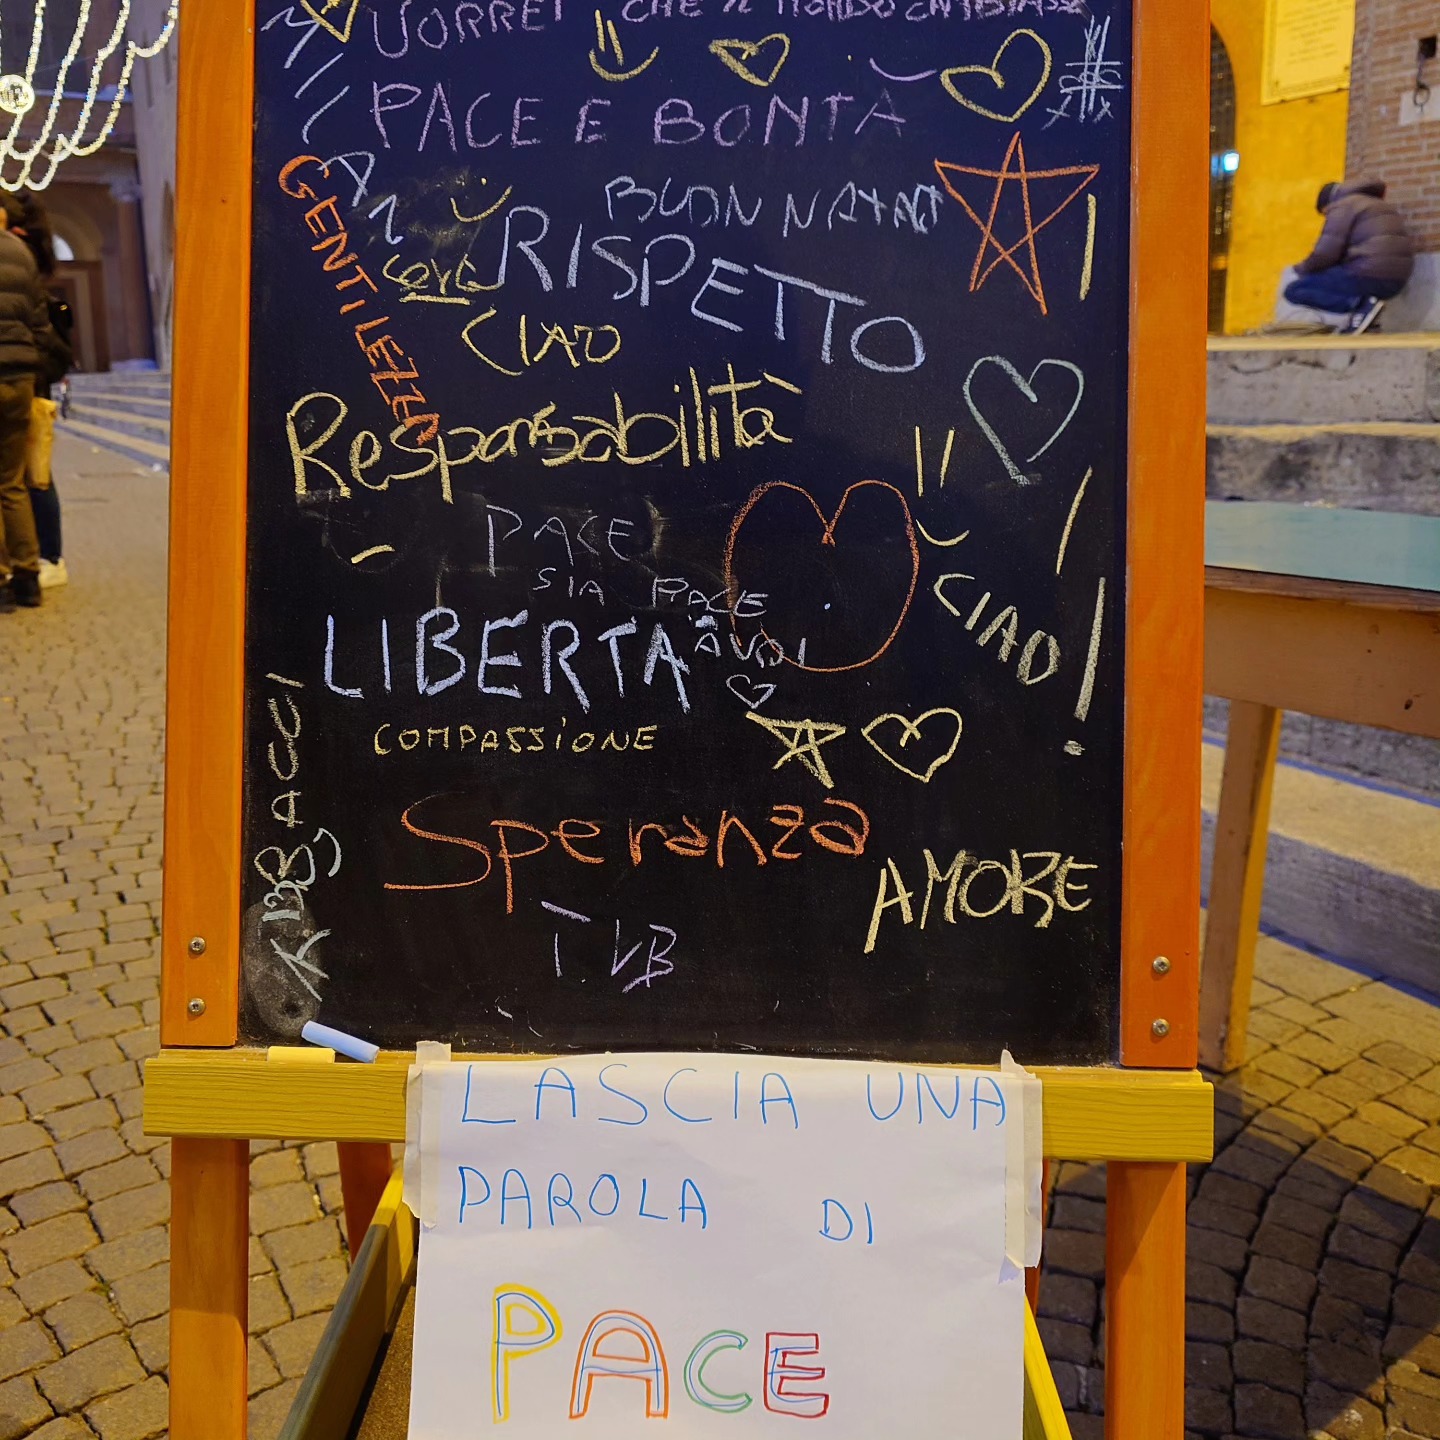 VORREI CHE IL MONDO CAMBIASSE
PACE E BONTÀ
GENTILEZZA
BUON NATALE
RISPETTO
CIAO
Responsabilità
PACE
SIA PACE
A VOI
LIBERTÀ
CIAO
COMPASSIONE
BACCI
Speranza
AMORE
TVB
LASCIA UNA
PAROLA DI
PACE